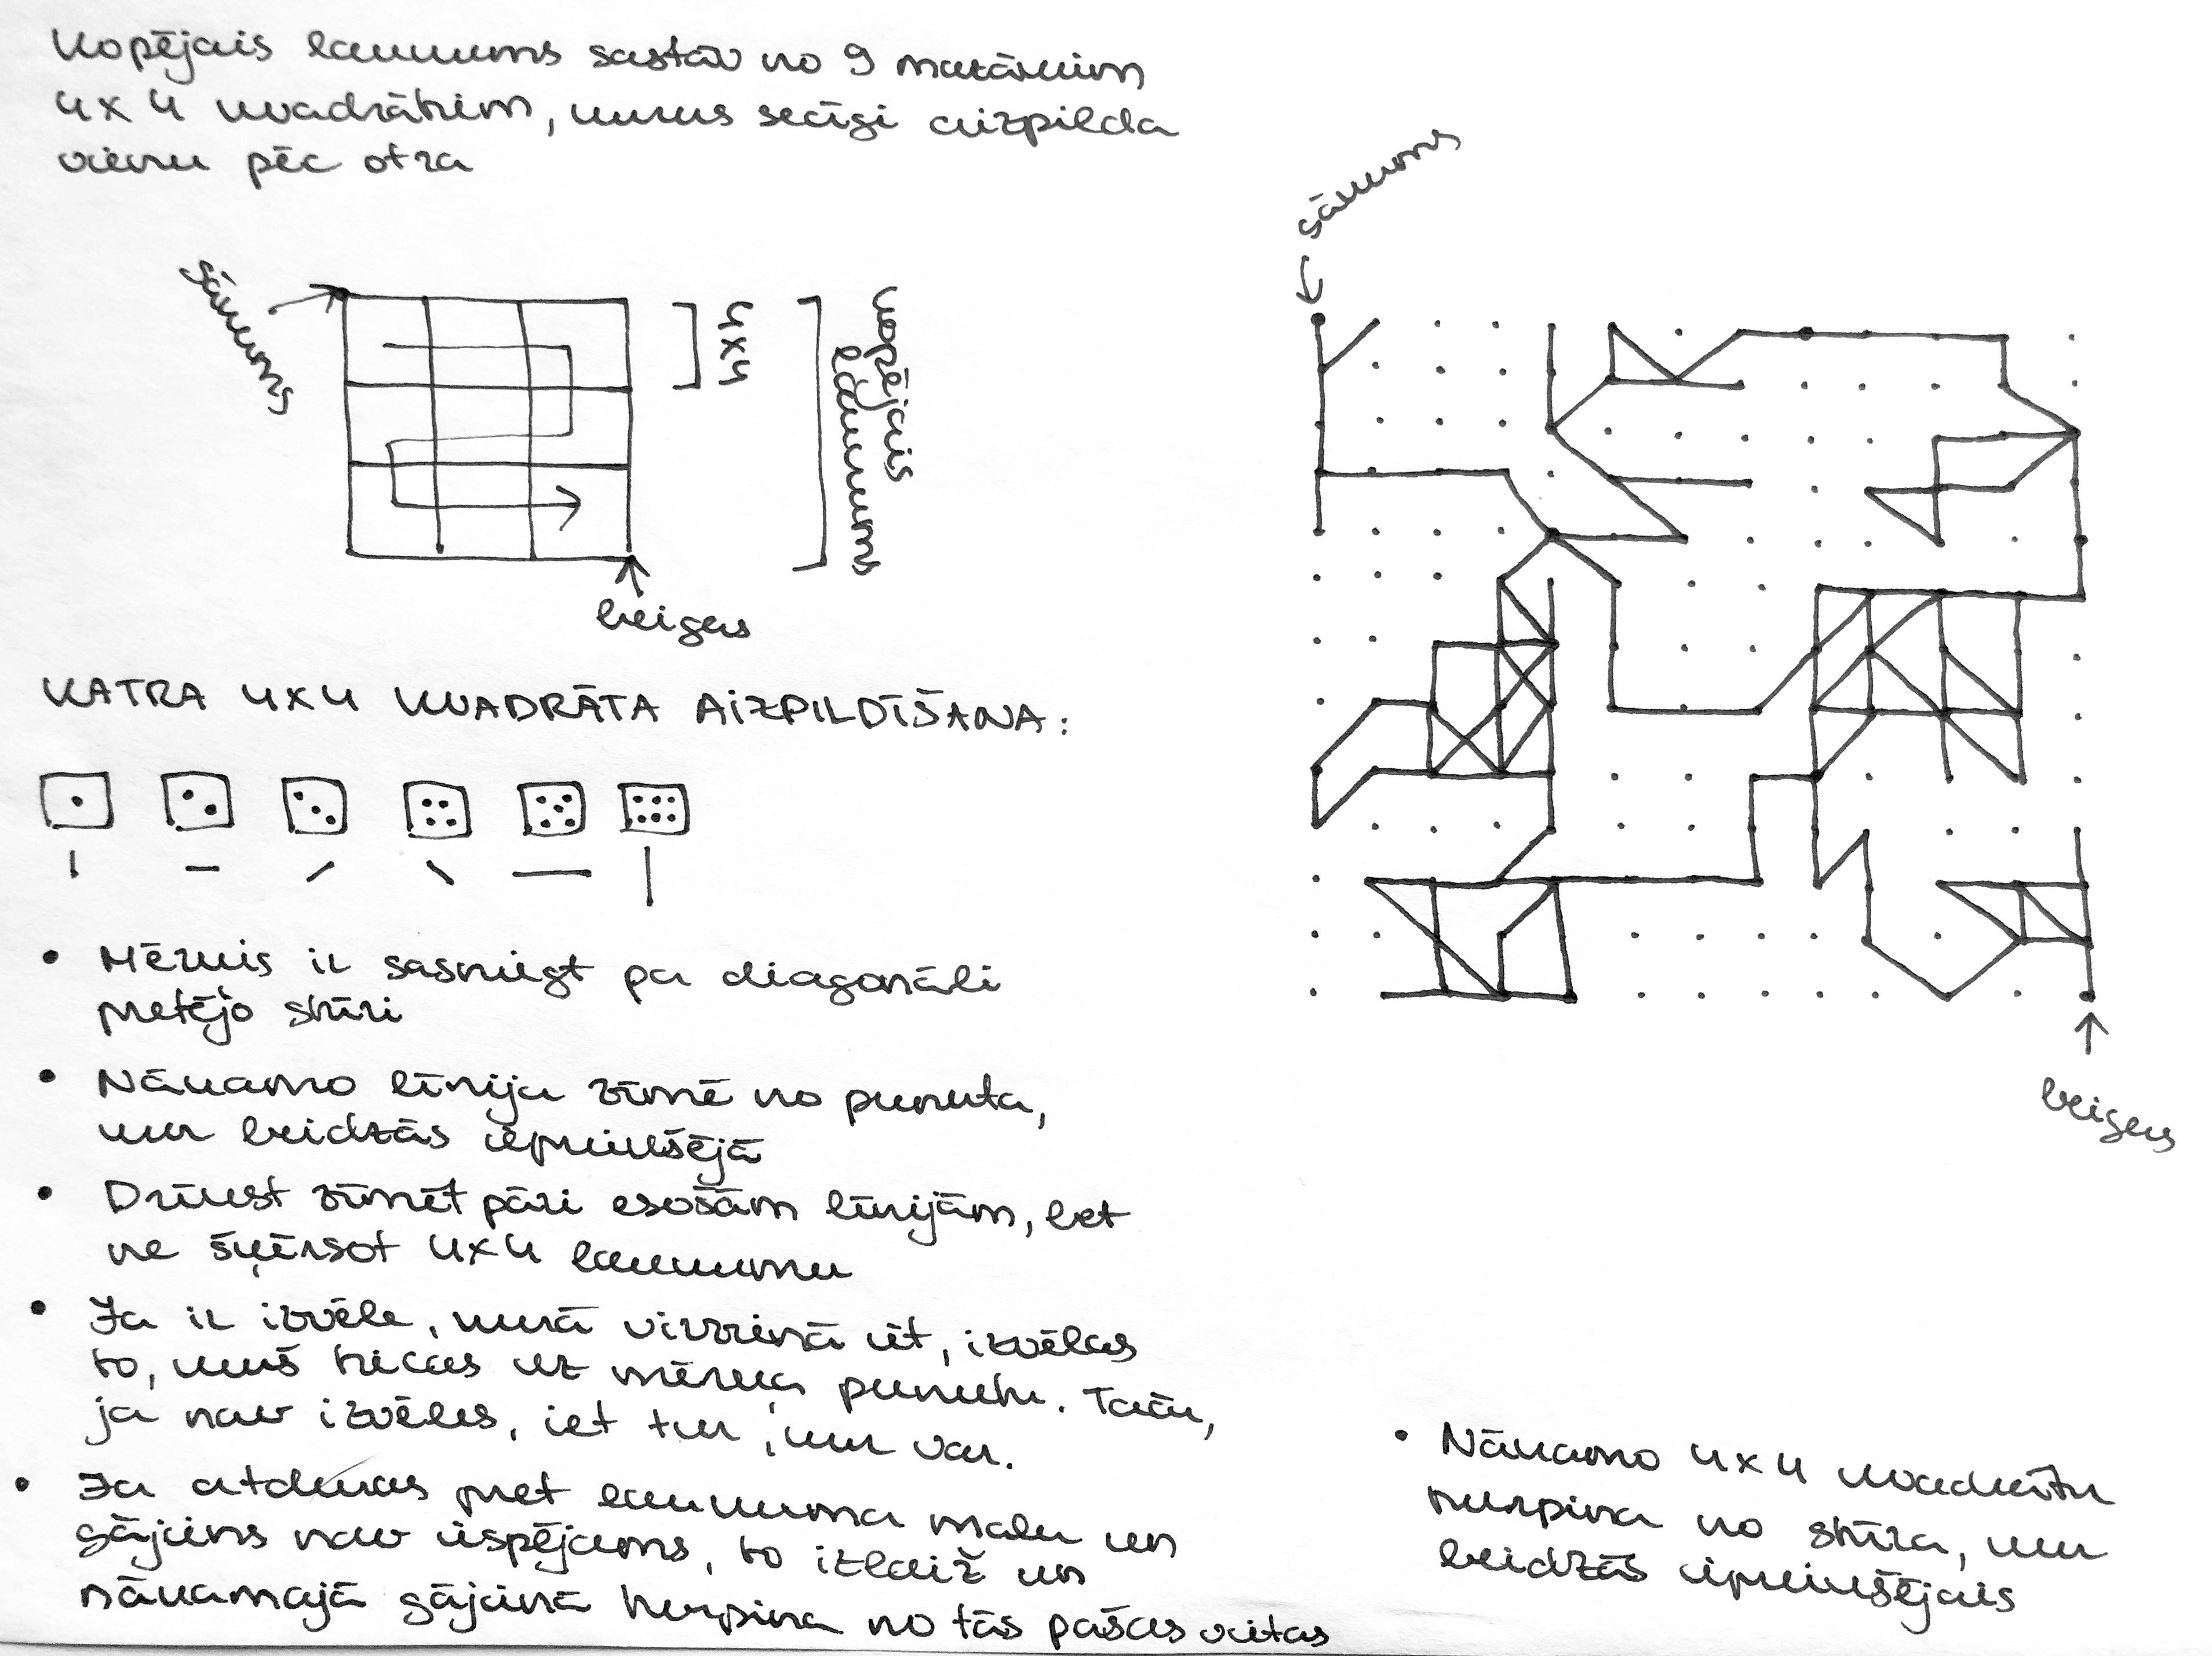 Kopējais laukums sastāv no 9 mazākiem
4x4 kvadrātiem, kurus secīgi aizpilda
vienu pēc otra
sākums
4x4
kopējais
laukums
beigas
sākums
beigas
KATRA 4X4 KVADRĀTA AIZPILDĪŠANA:
• Mērķis ir sasniegt pa diagonāli
pretējo stūri
• Nākamo līniju zīmē no punkta,
kur beidzās iepriekšējā
• Drīkst zīmēt pāri esošām līnijām, bet
ne šķērsot 4x4 laukumu
• Ja ir izvēle, kurā virzienā iet, izvēlas
to, kurš tiecas uz mērķa punktu. Taču,
ja nav izvēles, iet tur, kur var.
• Ja atduras pret laukuma malu un
gājiens nav iespējams, to izlaiž un
nākamajā gājienā turpina no tās pašas vietas
• Nākamo 4x4 kvadrātu
turpina no stūra, kur
beidzās iepriekšējais